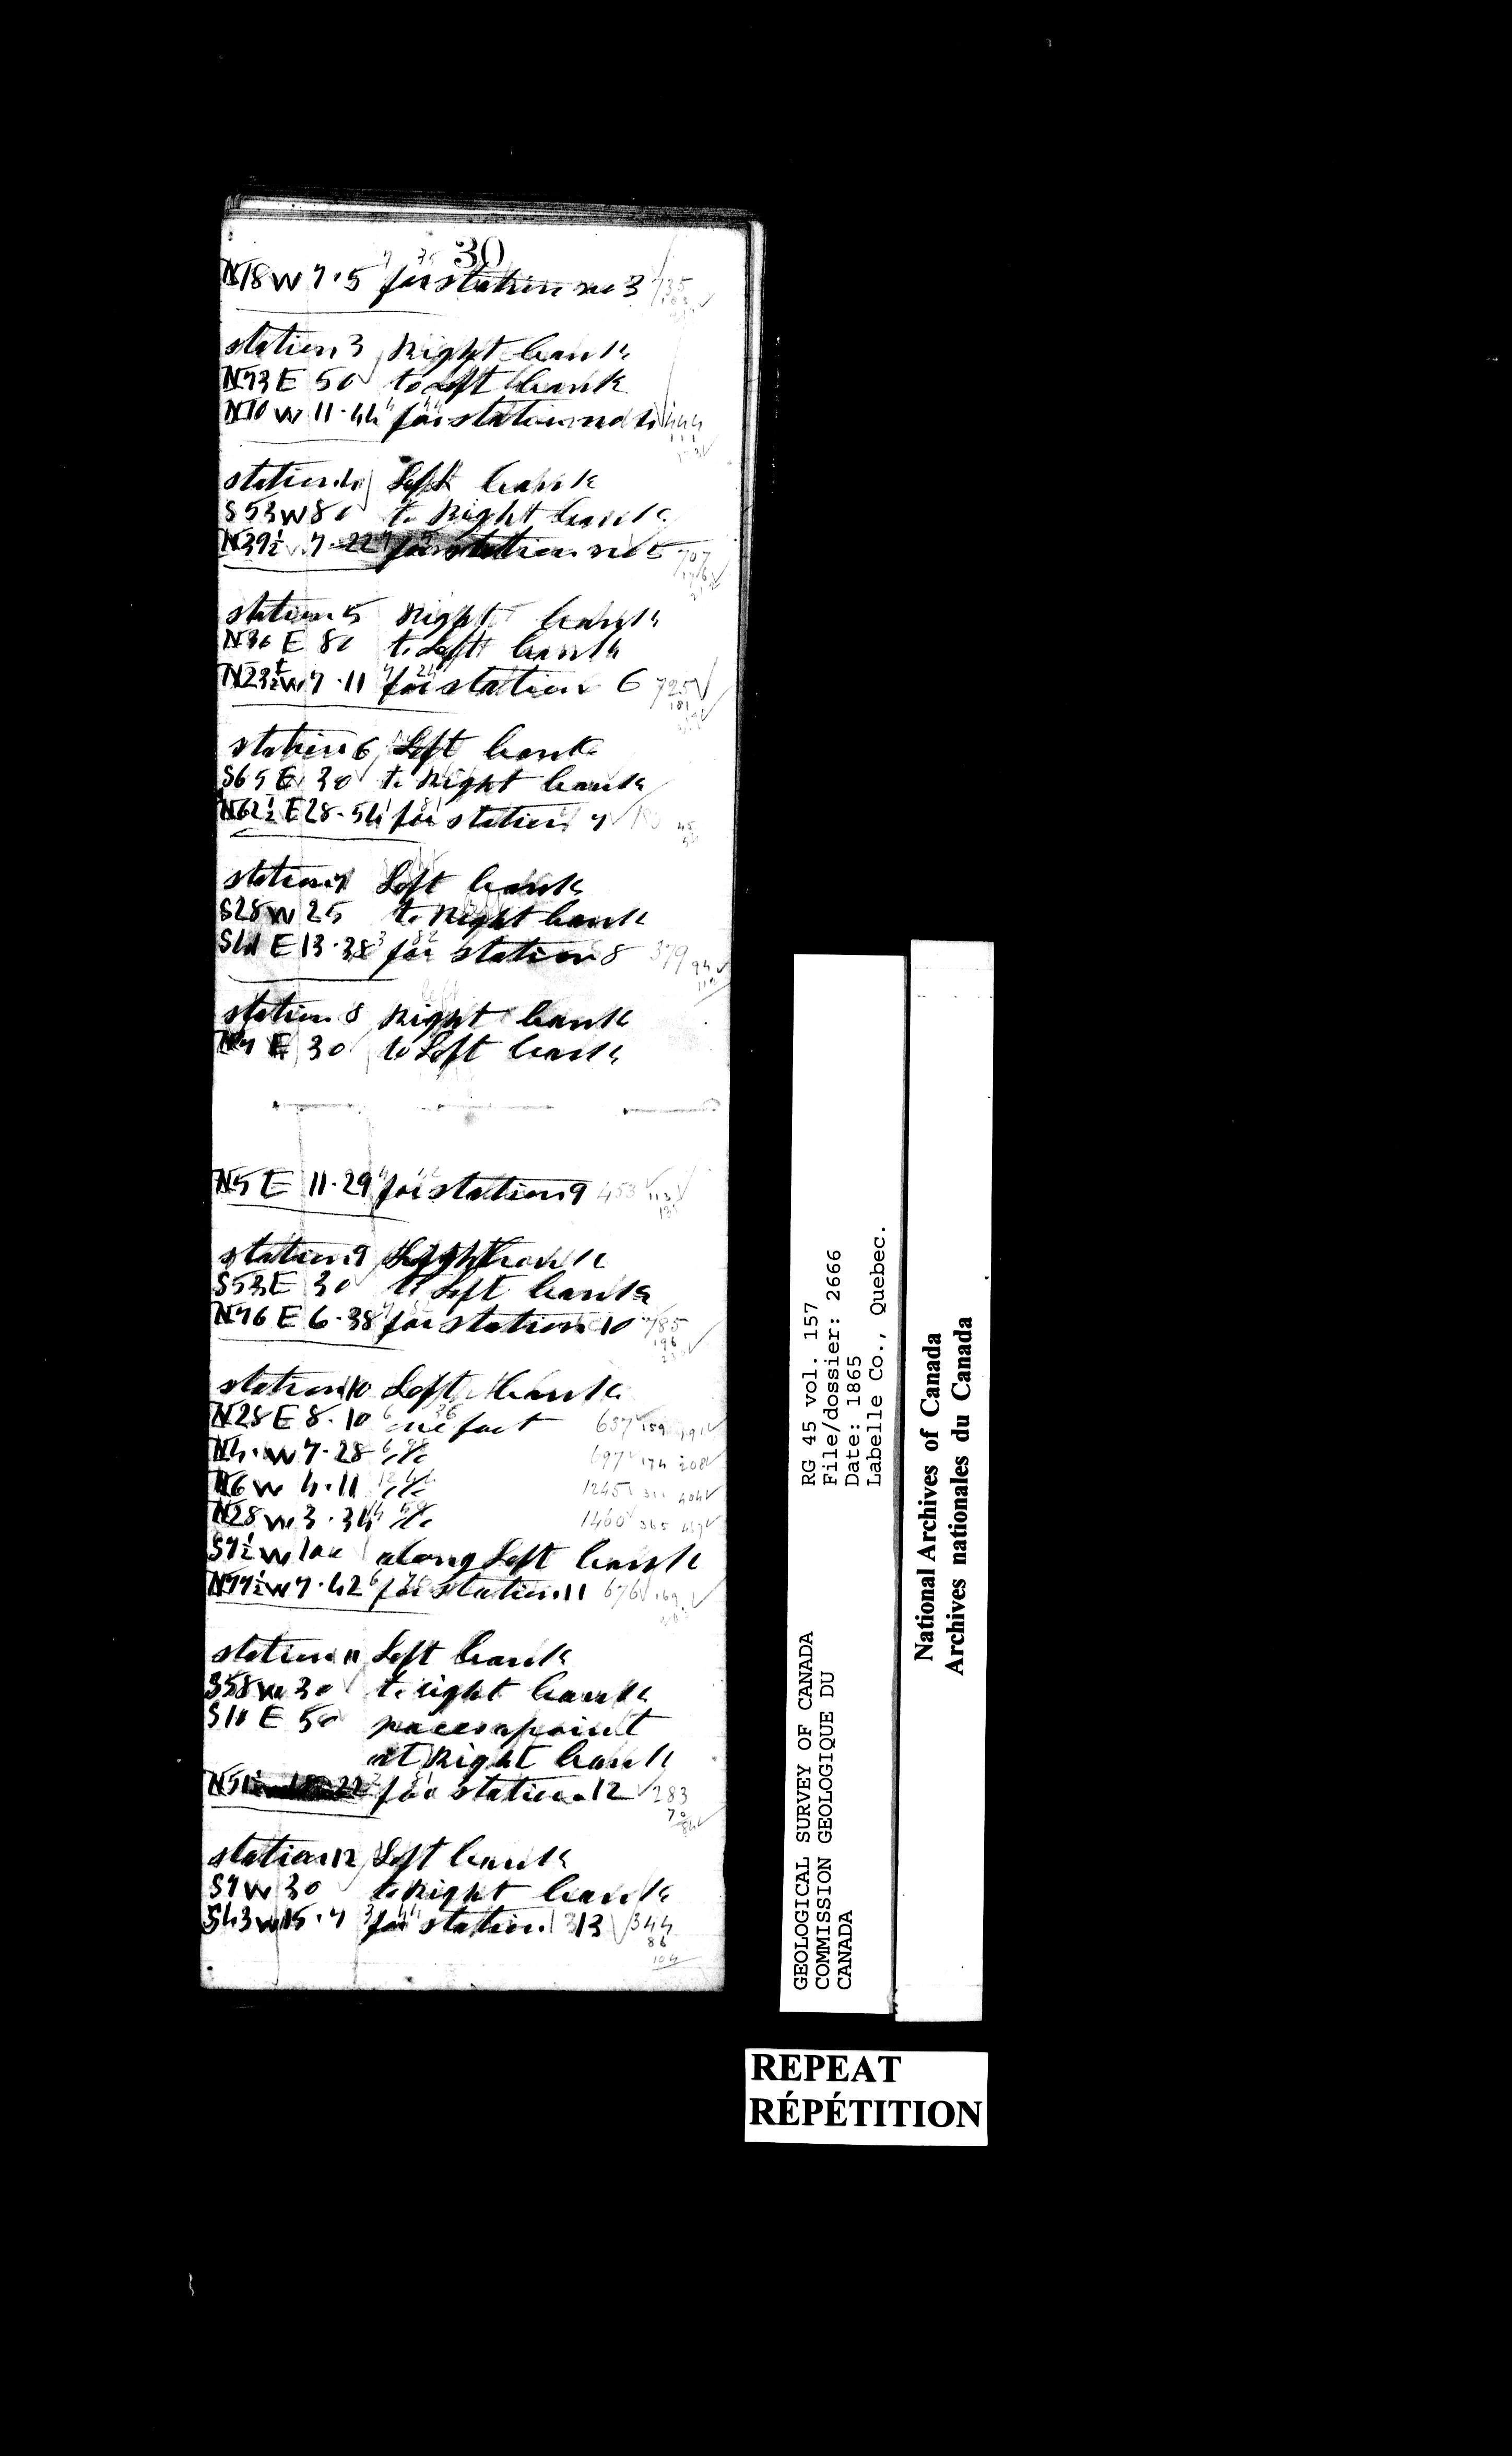 30
N18W 7.5 for station no 3 735
station 3 Right bank
N73E 50 to Left bank
N10W 11.44 for station no 4 444
station 4 Left bank
S53W 80 to Right bank
N39½ 7.22 for station no 5 707
station 5 Right bank
N36E 80 to Left bank
N23½W 7.11 for station 6 725
181
station 6 Left bank
S65E 30 to Right bank
N62½E 28.54 for station 7
station 7 Left bank
S28W 25 to Right bank
E 13.38 for station 8 379 94
station 8 Right bank
E 30 to Left bank
N5E 11.29 for station 9 453 113
station 9 bank
S53E 30 to Left bank
N76E 6.38 for station 10 785
196
station 10 Left bank
N28E 8.10 637 159
W 7.28 697 174 208
N6W 4.11 1245 311
N28W 3.34 1460 365
S7½W 100 along Left bank
N77½W 7.42 for station 11 676 169
station 11 Left bank
S58W 30 to right bank
S10E 50 point
at Right bank
N51½ 22 for station 12 283
70
84
station 12 Left bank
S7W 30 to Right bank
S43W 15.7 for station 13 344
86
104
GEOLOGICAL SURVEY OF CANADA
COMMISSION GEOLOGIQUE DU
CANADA
RG 45 vol. 157
File/dossier: 2666
Date: 1865
Labelle Co., Quebec.
National Archives of Canada
Archives nationales du Canada
REPEAT
RÉPÉTITION